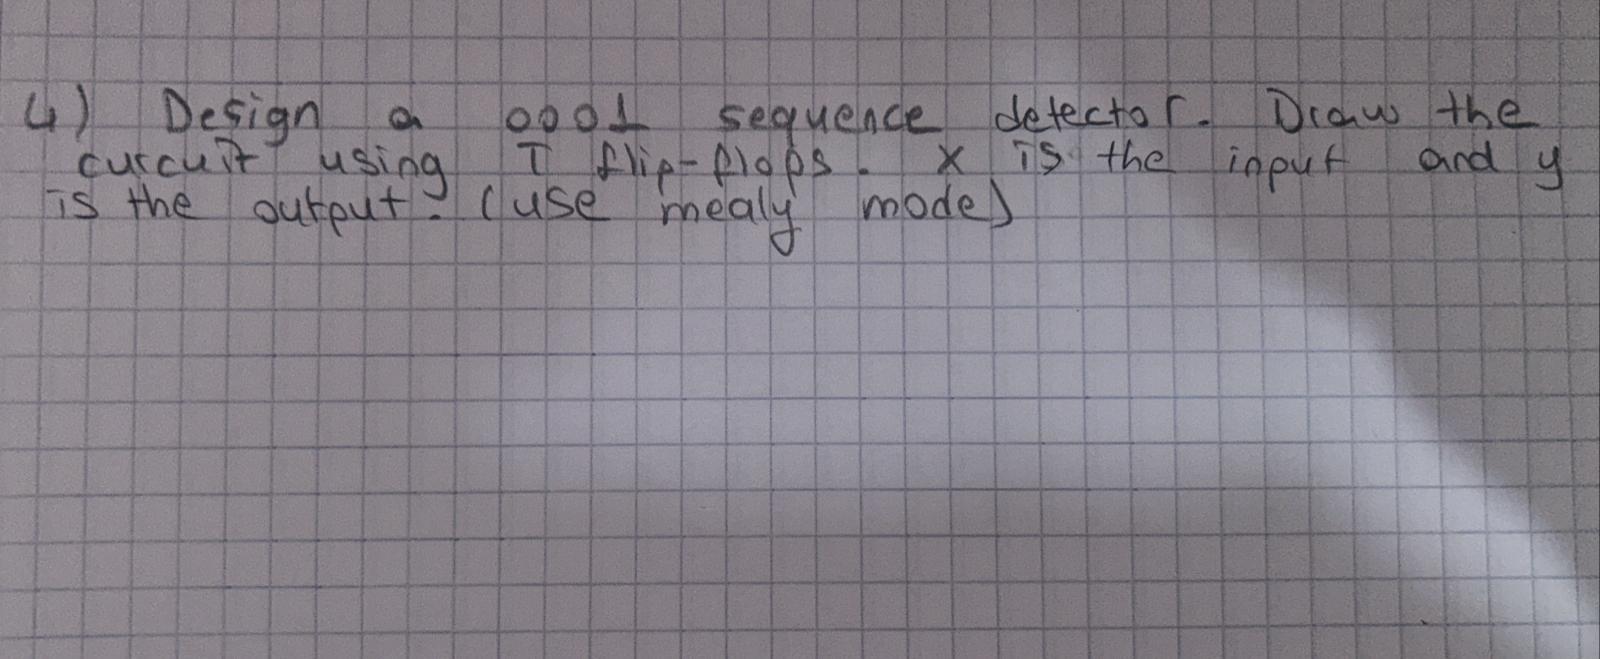 4) Design a 0001 sequence detector. Draw the
curcuit using T flip-flops. X is the input and y
is the output. (use mealy mode)